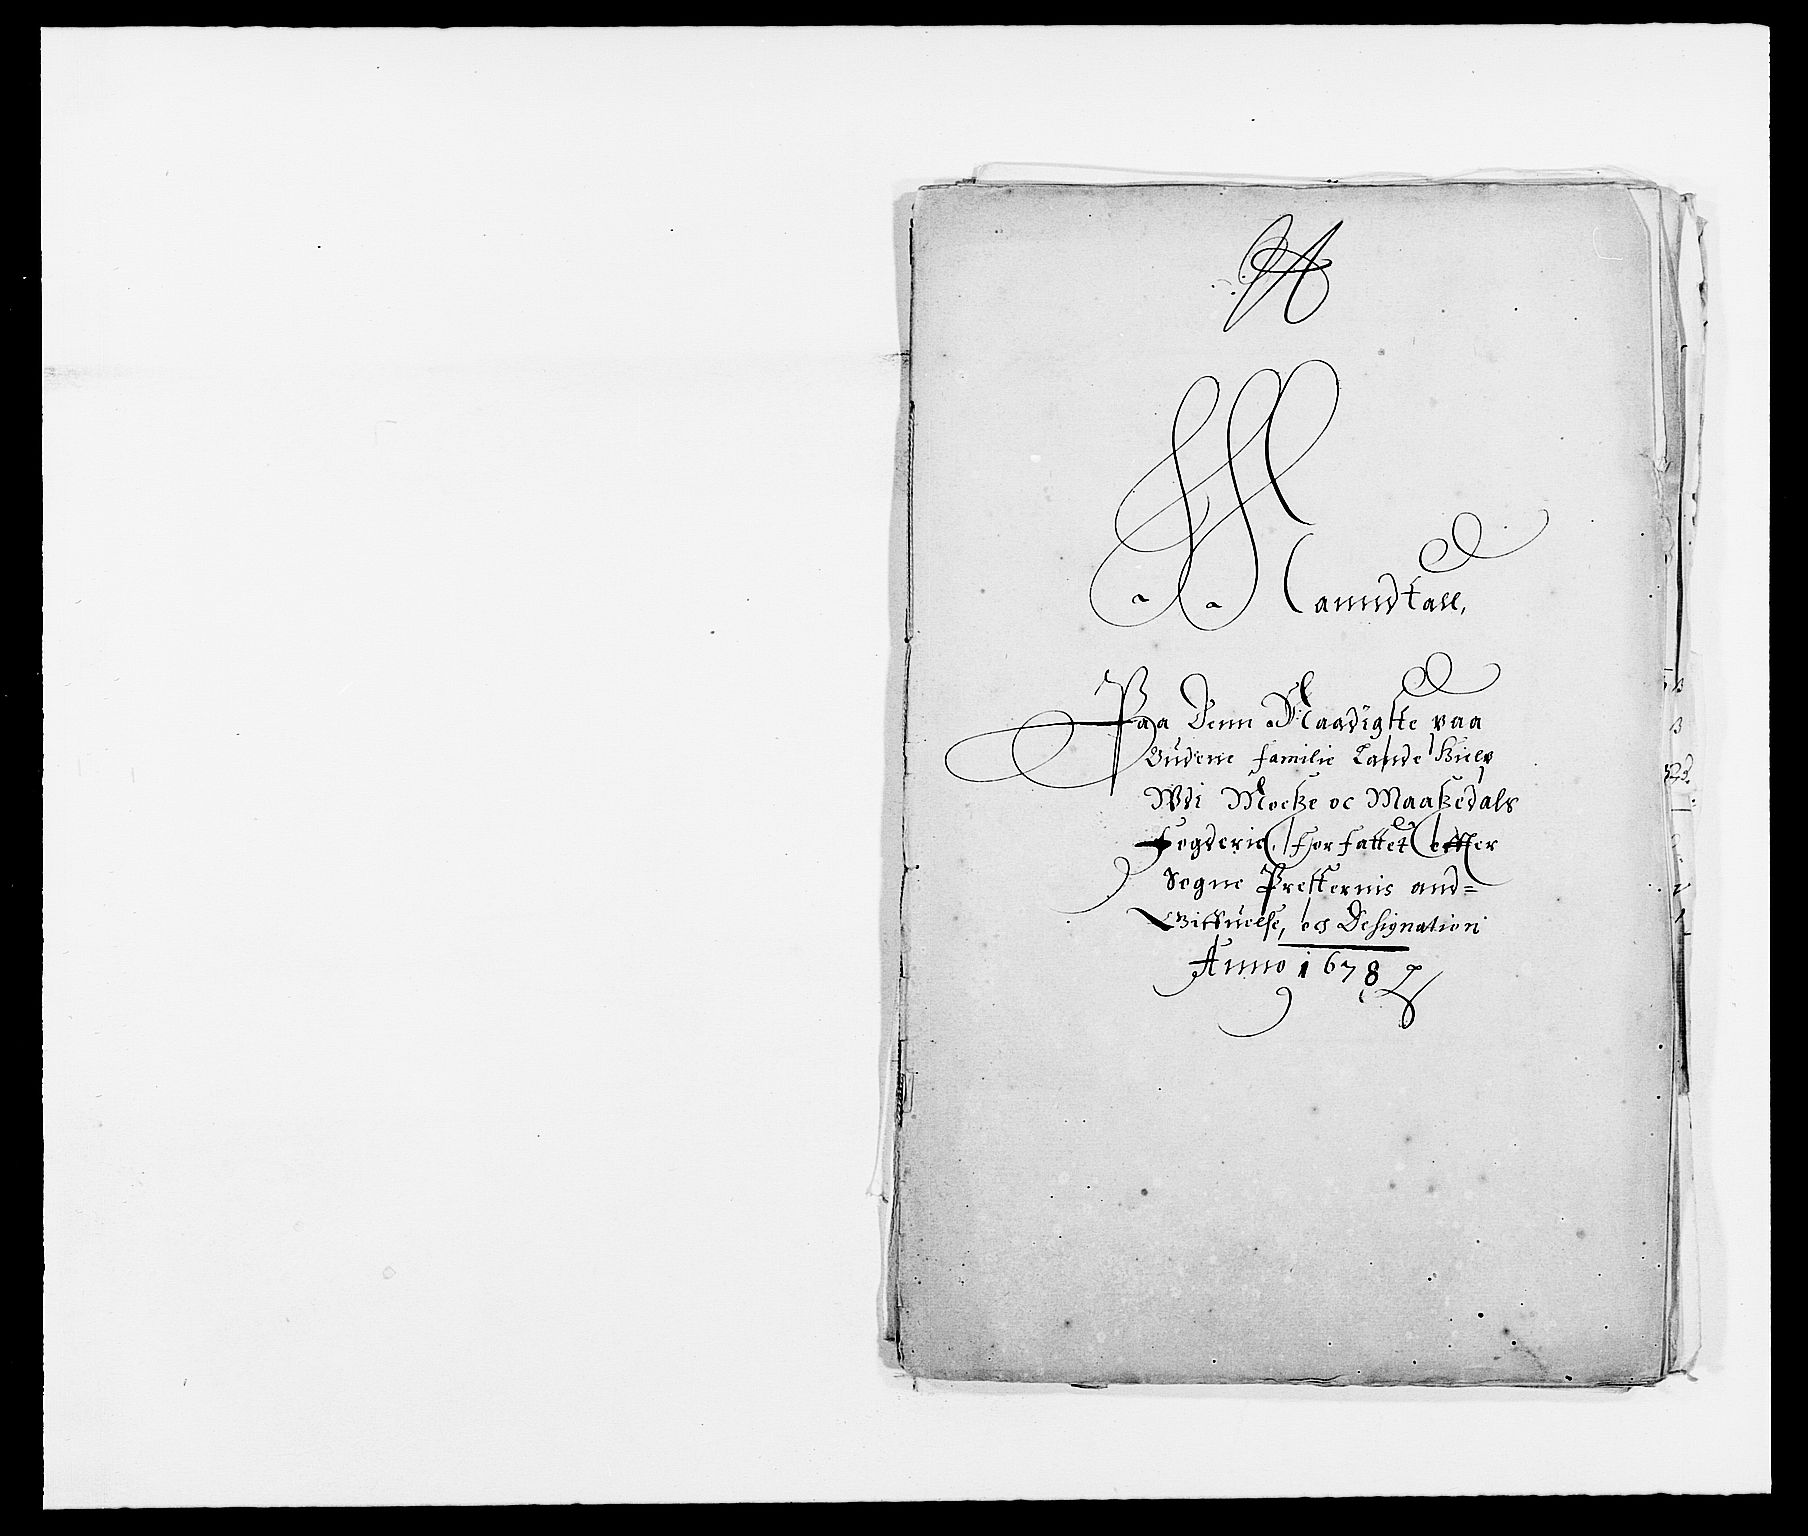 A
Manndtall,
Paa Denn Naadigste paa
Budene familie Lande Hielp
Wdi Mosße oc Maaßedals
fogderie, forfattet effter
Sogne Presternis and=
Gifvelse, och Designation
Anno 1678